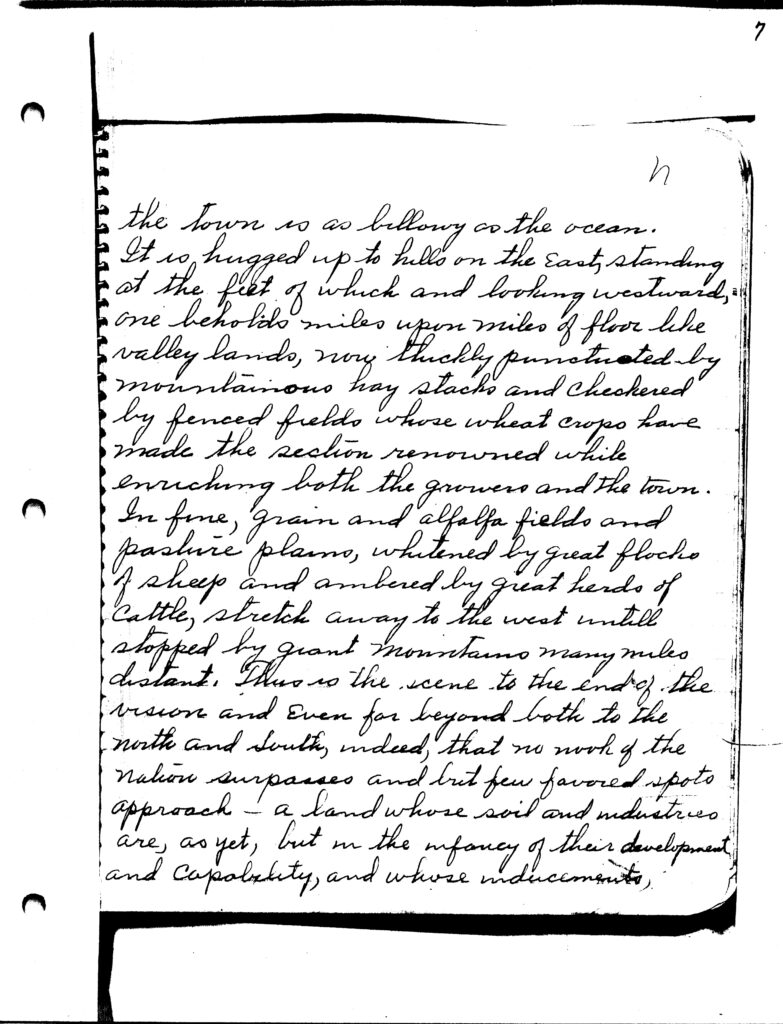 7
n
the town is as billowy as the ocean.
It is hugged up to hills on the East, standing
at the feet of which and looking westward,
one beholds miles upon miles of floor like
valley lands, now thickly punctuated by
mountainous hay stacks and checkered
by fenced fields whose wheat crops have
made the section renowned while
enriching both the growers and the town.
In fine, grain and alfalfa fields and
pasture plains, whitened by great flocks
of sheep and ambered by great herds of
Cattle, stretch away to the west untill
stopped by giant mountains many miles
distant. Thus is the scene to the end of the
vision and Even far beyond both to the
north and South, indeed, that no nook of the
Nation surpasses and but few favored spots
approach – a land whose soil and industries
are, as yet, but in the infancy of their development
and Capability, and whose inducements,